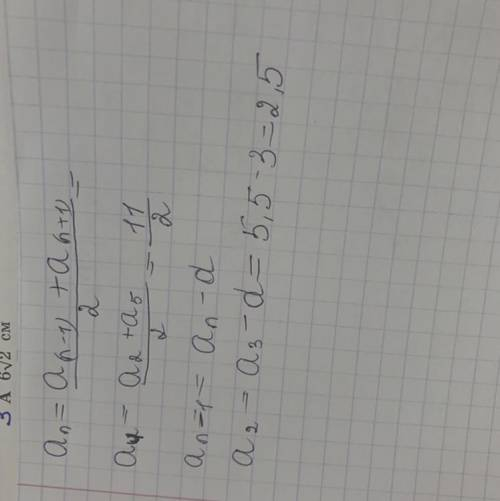 3 А 6√2 см
aₙ = (a₍ₙ₋₁₎ + a₍ₙ₊₁₎)/2 =
a₄ = (a₂ + a₅)/2 = 11/2
aₙ₌₁ = aₙ - d
a₂ = a₃ - d = 5,5 - 3 = 2,5